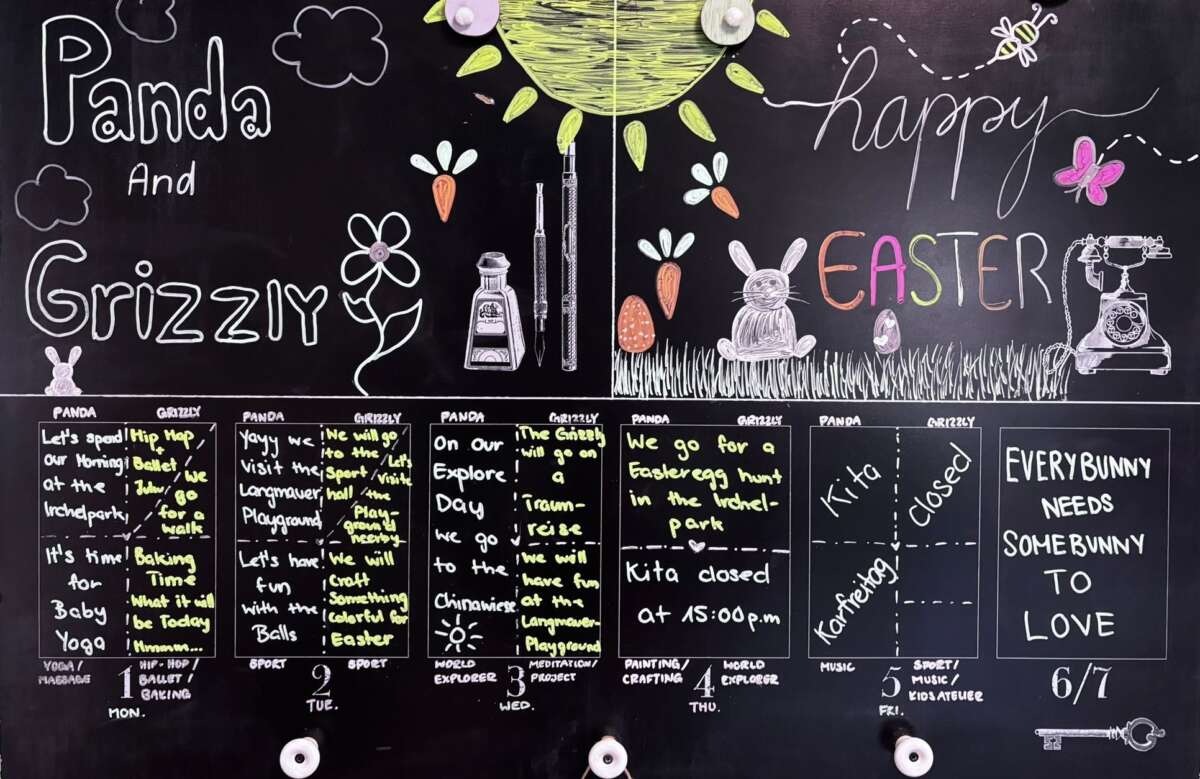 Panda
And
Grizzly
happy
EASTER
PANDA
GRIZZLY
Let's spend
our Morning
at the
Irchelpark
It's time
for
Baby
Yoga
Hip Hop
+
Ballet
John
We
go
for a
walk
Baking
Time
What it will
be Today
Hmmm...
YOGA/
MASSAGE
1
MON.
HIP-HOP/
BALLET/
BAKING
PANDA
GRIZZLY
Yayy we
visit the
Langmauer
Playground
Let's have
fun
with the
Balls
We will go
to the
Sport
hall
Let's
visite
the
Play-
ground
nearby
We will
Craft
Something
colorful for
Easter
SPORT
2
TUE.
SPORT
PANDA
GRIZZLY
On Our
Explore
Day
we go
to the
Chinawiese
The Grizzly
will go on
a
Traum-
reise
We will
have fun
at the
Langmauer-
Playground
WORLD
EXPLORER
3
WED.
MEDITATION/
PROJECT
PANDA
GRIZZLY
We go for a
Easteregg hunt
in the Irchel-
park
Kita closed
at 15:00p.m
PAINTING/
CRAFTING
4
THU.
WORLD
EXPLORER
PANDA
GRIZZLY
Kita
Closed
Karfreitag
MUSIC
5
FRI.
SPORT/
MUSIC/
KIDSATELIER
EVERYBUNNY
NEEDS
SOMEBUNNY
TO
LOVE
6/7